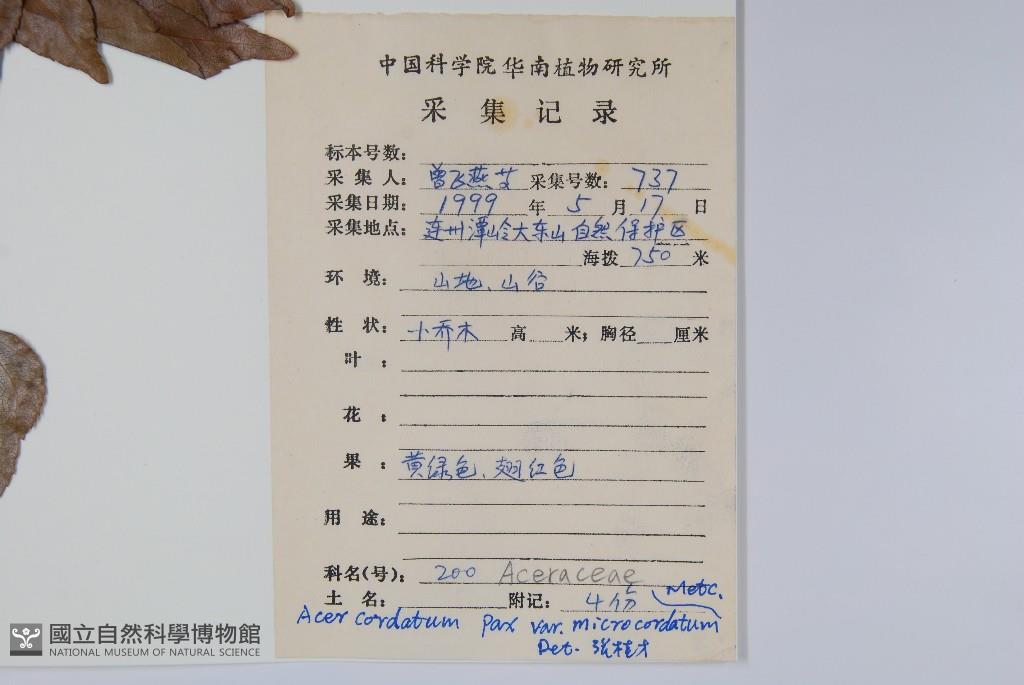 中国科学院华南植物研究所
采集记录
标本号数:
采集人: 曾飞燕 艾 采集号数: 737
采集日期: 1999 年 5 月 17 日
采集地点: 连州潭岭大东山自然保护区
海拨 750 米
环境: 山地、山谷
性状: 小乔木 高 米; 胸径 厘米
叶:
花:
果: 黄绿色、翅红色
用途:
科名(号): 200 Aceraceae
土名: 附记: 4份 Metc.
Acer cordatum Pax var. microcordatum
Det. 张桂才
國立自然科學博物館
NATIONAL MUSEUM OF NATURAL SCIENCE